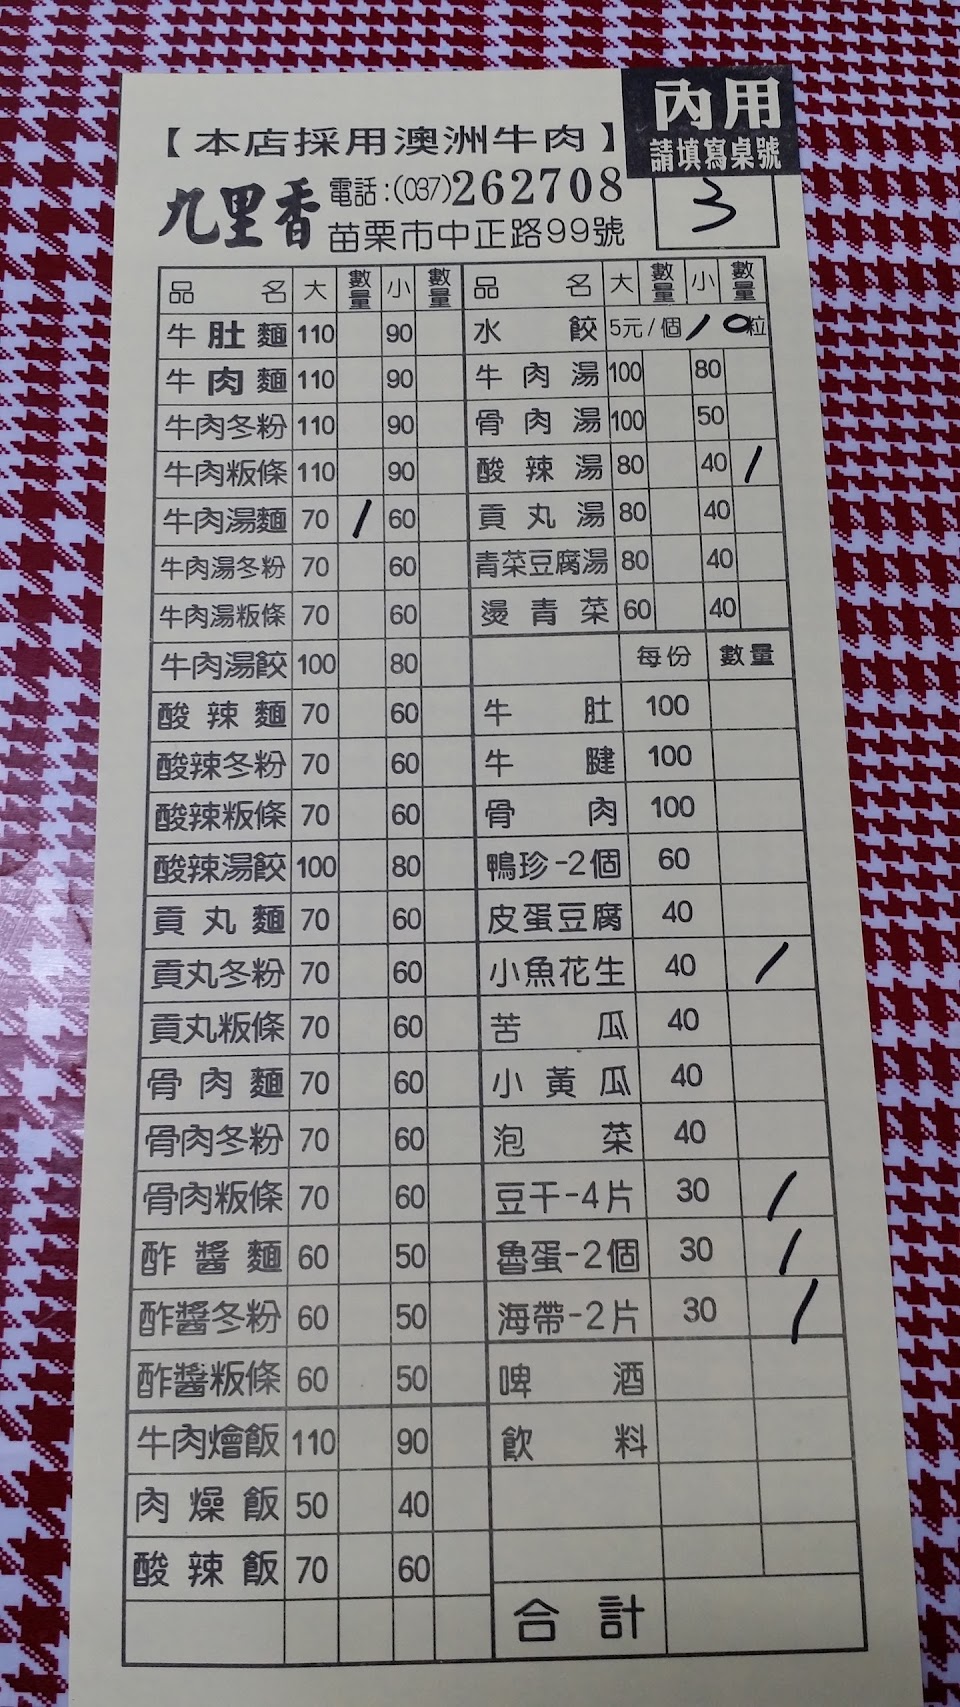 內用
請填寫桌號
3
【本店採用澳洲牛肉】
九里香
電話:(037)262708
苗栗市中正路99號
品名 大 數量 小 數量
牛肚麵 110 90
牛肉麵 110 90
牛肉冬粉 110 90
牛肉粄條 110 90
牛肉湯麵 70 / 60
牛肉湯冬粉 70 60
牛肉湯粄條 70 60
牛肉湯餃 100 80
酸辣麵 70 60
酸辣冬粉 70 60
酸辣粄條 70 60
酸辣湯餃 100 80
貢丸麵 70 60
貢丸冬粉 70 60
貢丸粄條 70 60
骨肉麵 70 60
骨肉冬粉 70 60
骨肉粄條 70 60
酢醬麵 60 50
酢醬冬粉 60 50
酢醬粄條 60 50
牛肉燴飯 110 90
肉燥飯 50 40
酸辣飯 70 60
品名 大 數量 小 數量
水餃 5元/個 10粒
牛肉湯 100 80
骨肉湯 100 50
酸辣湯 80 40 /
貢丸湯 80 40
青菜豆腐湯 80 40
燙青菜 60 40
每份 數量
牛肚 100
牛腱 100
骨肉 100
鴨珍-2個 60
皮蛋豆腐 40
小魚花生 40 /
苦瓜 40
小黃瓜 40
泡菜 40
豆干-4片 30 /
魯蛋-2個 30 /
海帶-2片 30 /
啤酒
飲料
合計